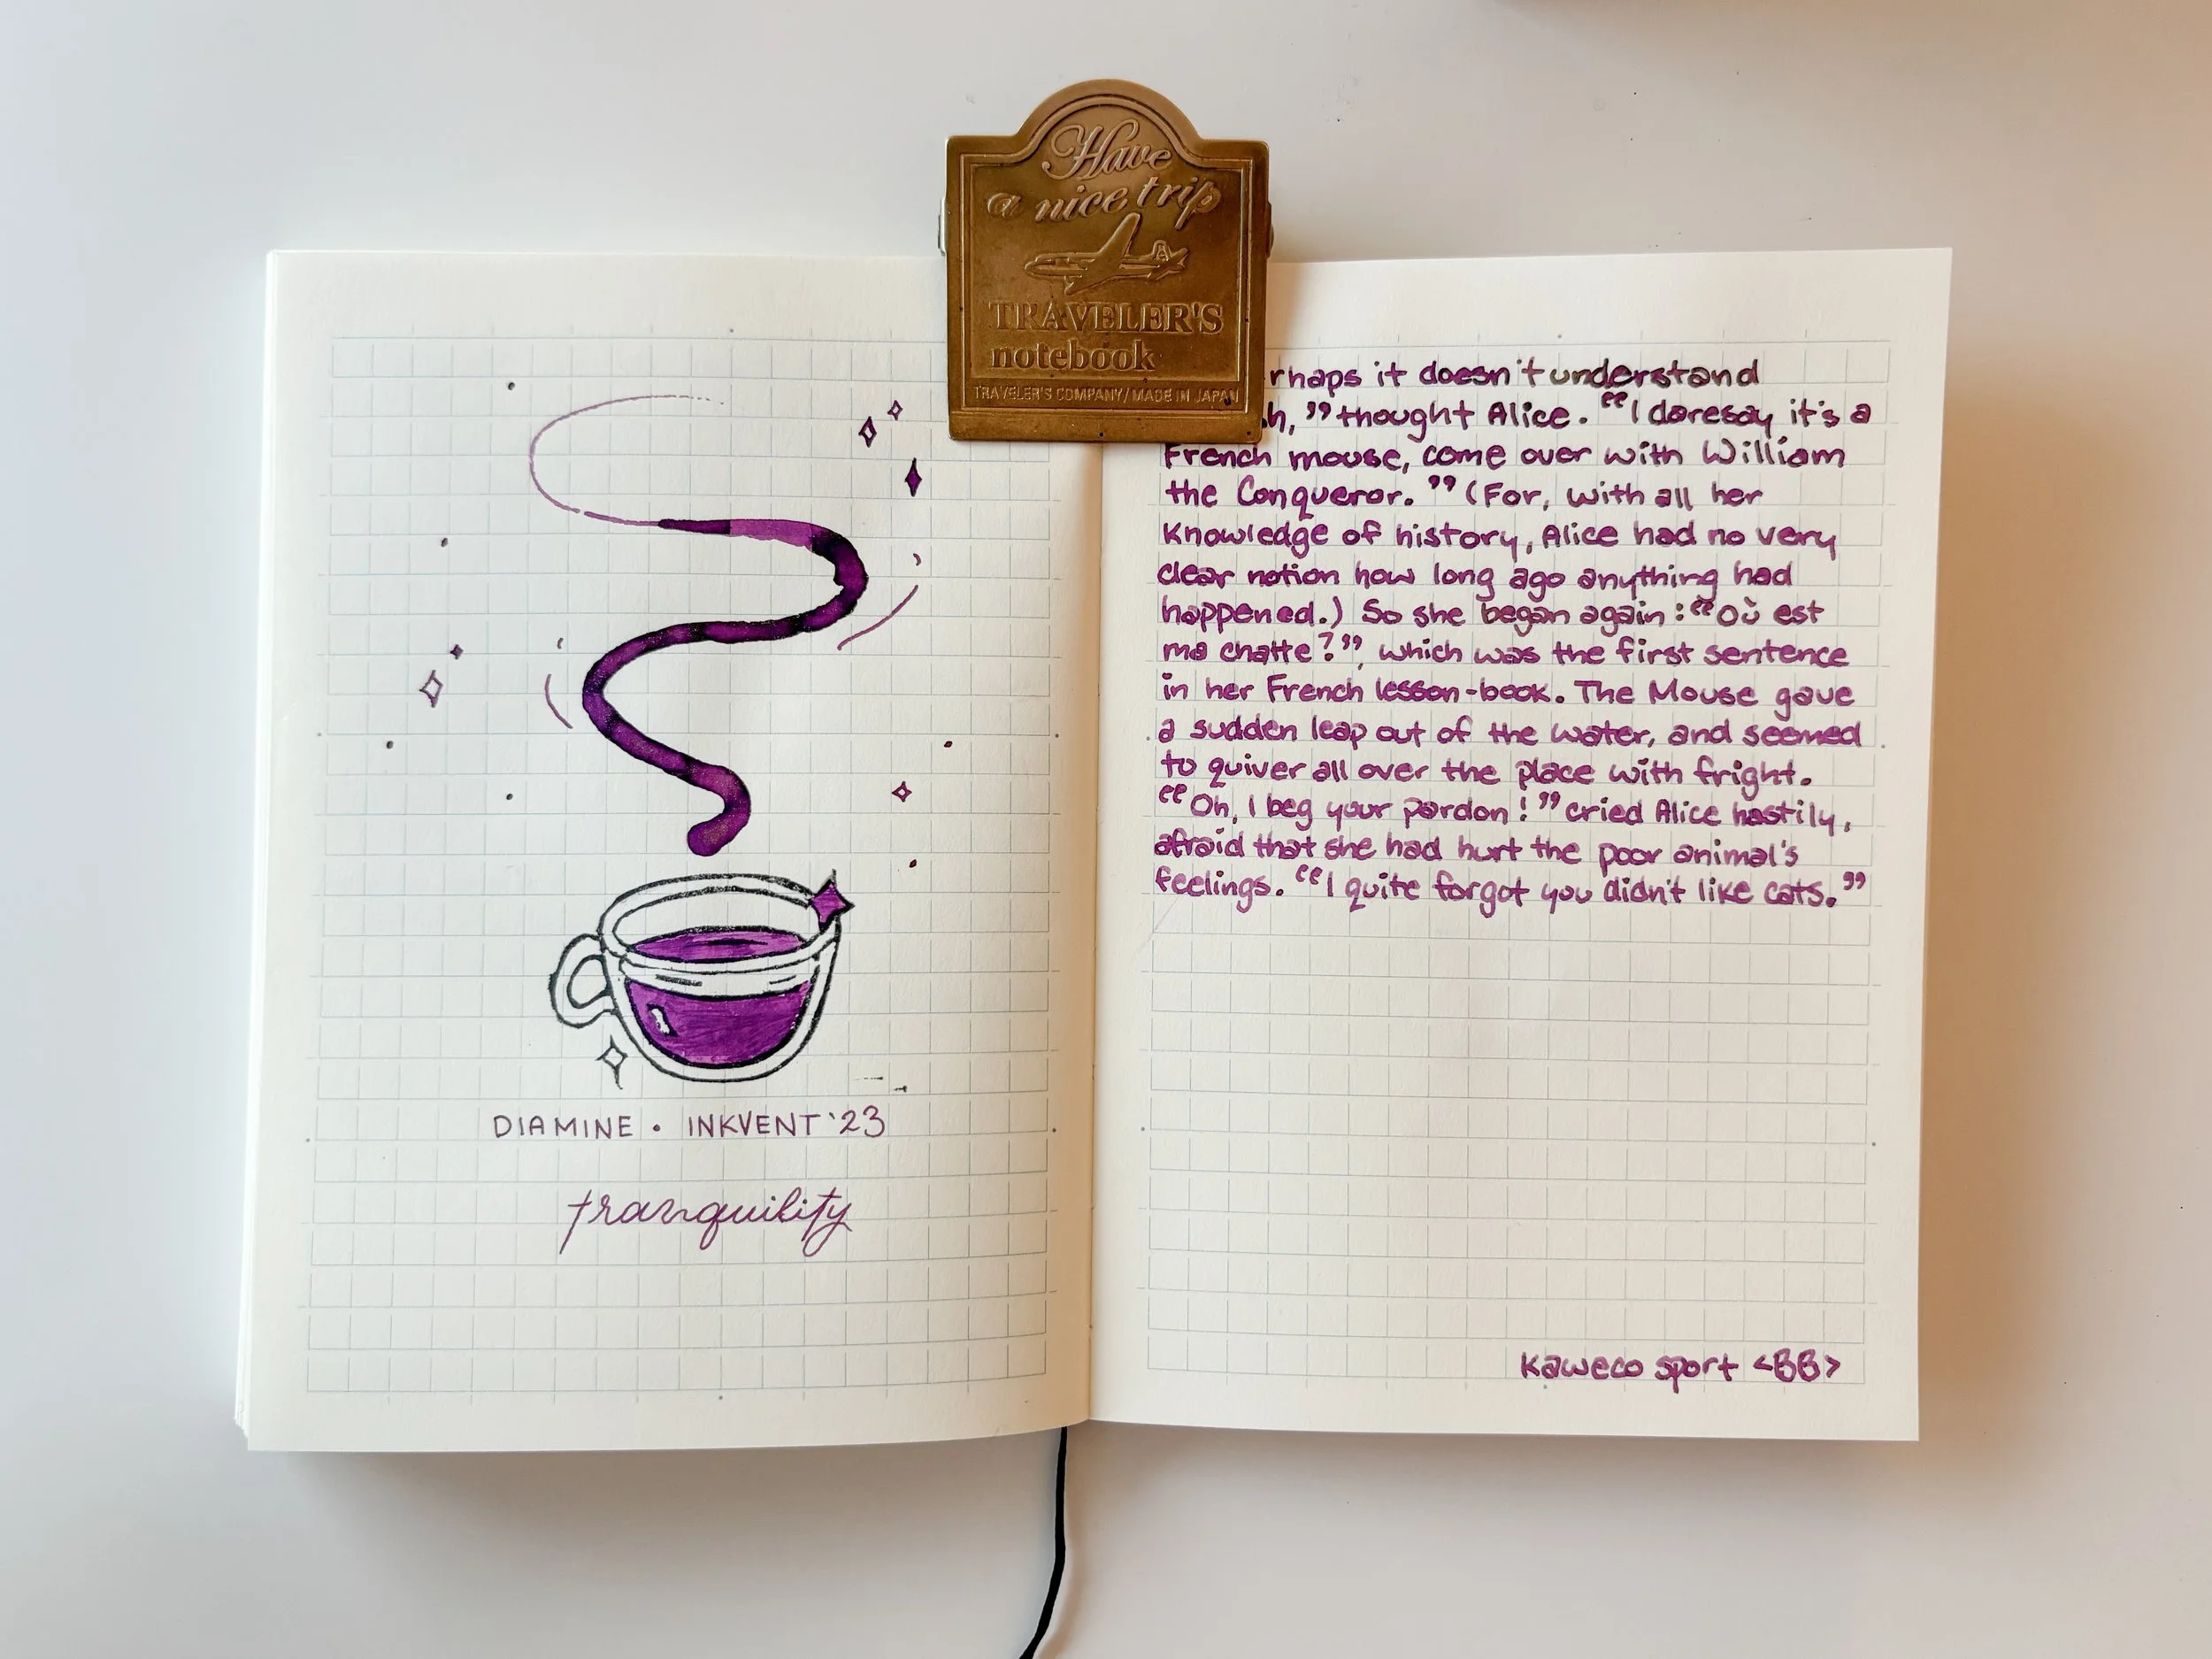 Have
a nice trip
TRAVELER'S
notebook
TRAVELER'S COMPANY/MADE IN JAPAN
DIAMINE • INKVENT '23
tranquility
rhaps it doesn't understand
h,” thought Alice. “I daresay it's a
French mouse, come over with William
the Conqueror.” (For, with all her
knowledge of history, Alice had no very
clear notion how long ago anything had
happened.) So she began again: “Où est
ma chatte?”, which was the first sentence
in her French lesson-book. The Mouse gave
a sudden leap out of the water, and seemed
to quiver all over the place with fright.
“Oh, I beg your pardon!” cried Alice hastily,
afraid that she had hurt the poor animal's
feelings. “I quite forgot you didn't like cats.”
Kaweco sport <BB>